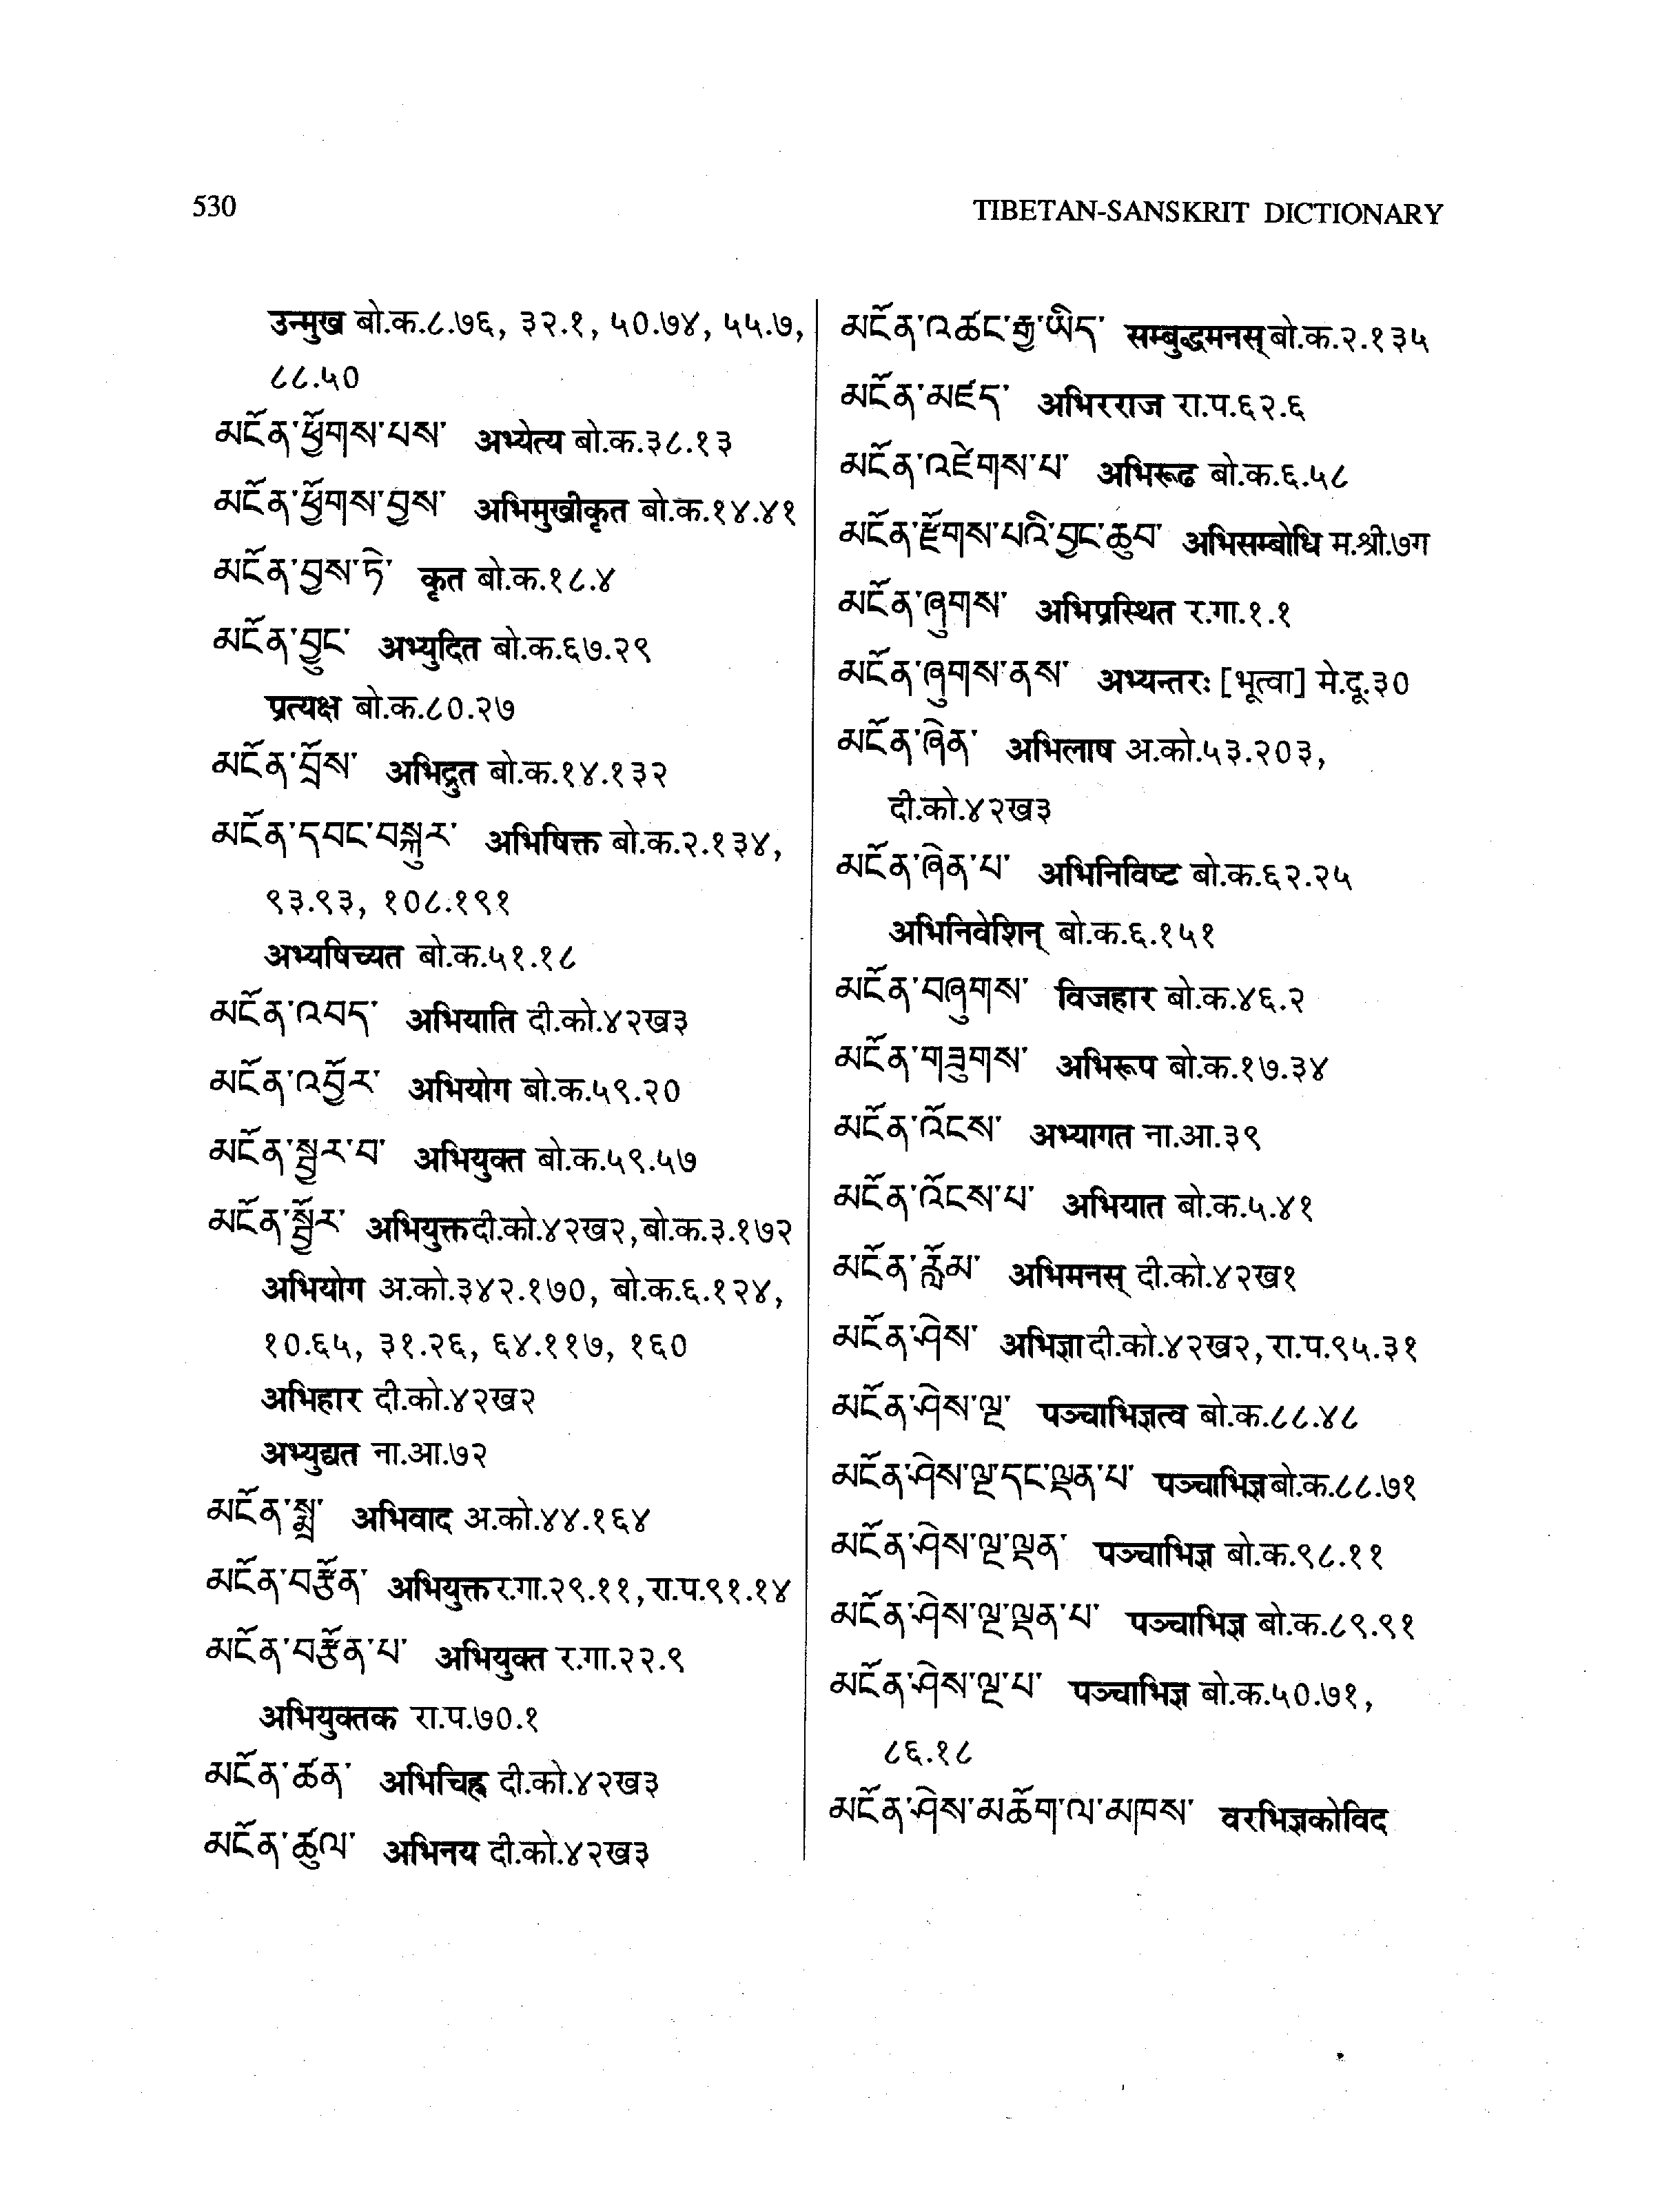 530
TIBETAN-SANSKRIT DICTIONARY
उन्मुख बो.क.८.७६, ३२.१, ५०.७४, ५५.७,
८८.५०
མངོན་ཕྱོགས་པས་ अभ्येत्य बो.क.३८.१३
མངོན་ཕྱོགས་བྱས་ अभिमुखीकृत बो.क.१४.४१
མངོན་བྱས་ཏེ་ कृत बो.क.१८.४
མངོན་བྱུང་ अभ्युदित बो.क.६७.२९
प्रत्यक्ष बो.क.८०.२७
མངོན་བྲོས་ अभिद्रुत बो.क.१४.१३२
མངོན་དབང་བསྐུར་ अभिषिक्त बो.क.२.१३४,
९३.९३, १०८.१९१
अभ्यषिच्यत बो.क.५१.१८
མངོན་འབད་ अभियाति दी.को.४२ख३
མངོན་འབྱོར་ अभियोग बो.क.५९.२०
མངོན་སྦྱར་བ་ अभियुक्त बो.क.५९.५७
མངོན་སྦྱོར་ अभियुक्त दी.को.४२ख२, बो.क.३.१७२
अभियोग अ.को.३४२.१७०, बो.क.६.१२४,
१०.६५, ३१.२६, ६४.११७, १६०
अभिहार दी.को.४२ख२
अभ्युद्यत ना.आ.७२
མངོན་སྨྲ་ अभिवाद अ.को.४४.१६४
མངོན་བརྩོན་ अभियुक्त र.गा.२९.११, रा.प.९१.१४
མངོན་བརྩོན་པ་ अभियुक्त र.गा.२२.९
अभियुक्तक रा.प.७०.१
མངོན་ཚན་ अभिचिह्न दी.को.४२ख३
མངོན་ཚུལ་ अभिनय दी.को.४२ख३
མངོན་འཚང་རྒྱ་ཡིད་ सम्बुद्धमनस् बो.क.२.१३५
མངོན་མཛད་ अभिरराज रा.प.६२.६
མངོན་འཛེགས་པ་ अभिरूढ बो.क.६.५८
མངོན་རྫོགས་པའི་བྱང་ཆུབ་ अभिसम्बोधि म.श्री.७ग
མངོན་ཞུགས་ अभिप्रस्थित र.गा.१.१
མངོན་ཞུགས་ནས་ अभ्यन्तरः [भूत्वा] मे.दू.३०
མངོན་ཞེན་ अभिलाष अ.को.५३.२०३,
दी.को.४२ख३
མངོན་ཞེན་པ་ अभिनिविष्ट बो.क.६२.२५
अभिनिवेशिन् बो.क.६.१५१
མངོན་བཞུགས་ विजहार बो.क.४६.२
མངོན་གཟུགས་ अभिरूप बो.क.१७.३४
མངོན་འོངས་ अभ्यागत ना.आ.३९
མངོན་འོངས་པ་ अभियात बो.क.५.४१
མངོན་རློམ་ अभिमनस् दी.को.४२ख१
མངོན་ཤེས་ अभिज्ञा दी.को.४२ख२, रा.प.९५.३१
མངོན་ཤེས་ལྔ་ पञ्चाभिज्ञत्व बो.क.८८.४८
མངོན་ཤེས་ལྔ་དང་ལྡན་པ་ पञ्चाभिज्ञ बो.क.८८.७१
མངོན་ཤེས་ལྔ་ལྡན་ पञ्चाभिज्ञ बो.क.९८.११
མངོན་ཤེས་ལྔ་ལྡན་པ་ पञ्चाभिज्ञ बो.क.८९.९१
མངོན་ཤེས་ལྔ་པ་ पञ्चाभिज्ञ बो.क.५०.७१,
८६.१८
མངོན་ཤེས་མཆོག་ལ་མཁས་ वरभिज्ञकोविद